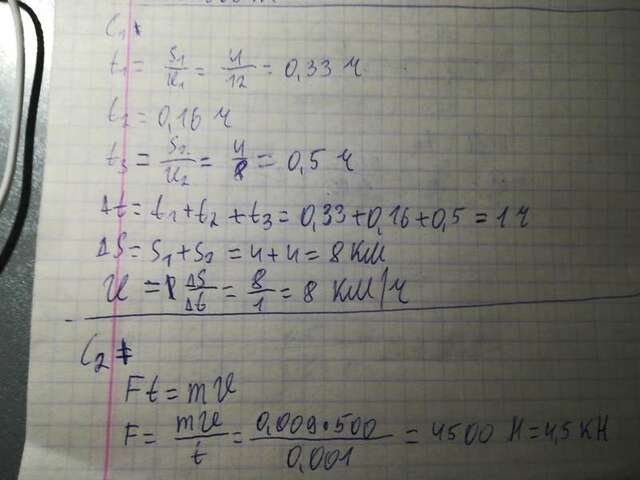 C₁
t₁ = S₁/υ₁ = 4/12 = 0,33 ч
t₂ = 0,16 ч
t₃ = S₂/υ₂ = 4/8 = 0,5 ч
Δt = t₁ + t₂ + t₃ = 0,33 + 0,16 + 0,5 = 1 ч
ΔS = S₁ + S₂ = 4 + 4 = 8 км
υ = ΔS/Δt = 8/1 = 8 км/ч
C₂
Ft = mυ
F = mυ/t = 0,009•500/0,001 = 4500 Н = 4,5 кН